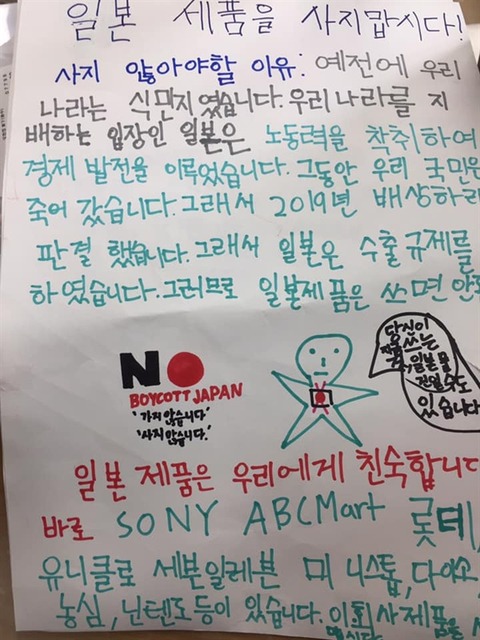 일본 제품을 사지맙시다!
사지 않아야할 이유: 예전에 우리
나라는 식민지 였습니다. 우리나라를 지
배하는 입장인 일본은 노동력을 착취하여
경제 발전을 이루었습니다. 그동안 우리 국민은
죽어 갔습니다. 그래서 2019년 배상하라
판결 했습니다. 그래서 일본은 수출규제를
하였습니다. 그러므로 일본제품은 쓰면 안
NO
BOYCOTT JAPAN
'가지않습니다'
'사지않습니다.'
당신이
쓰는
일본 물
건일수도
있습니다
일본 제품은 우리에게 친숙합니다
바로 SONY ABCMart 롯데,
유니클로 세븐일레븐 미니스톱, 다이소,
농심, 닌텐도 등이 있습니다. 이회사제품은